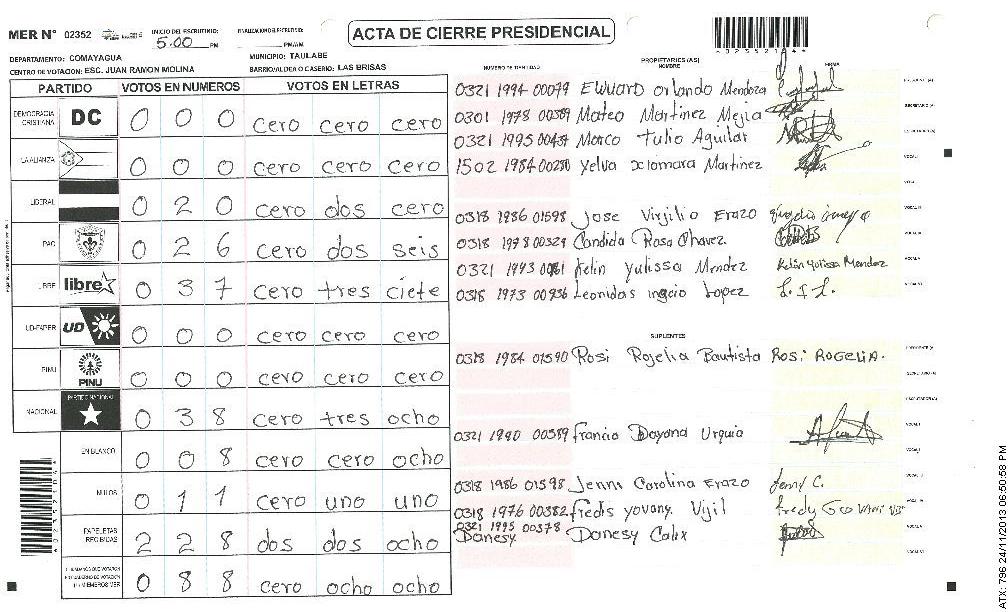 MER N° 02352 INICIO DEL ESCRUTINIO: 5:00 PM FINALIZACION DEL ESCRUTINIO: PM/AM
ACTA DE CIERRE PRESIDENCIAL
DEPARTAMENTO: COMAYAGUA MUNICIPIO: TAULABE
CENTRO DE VOTACION: ESC. JUAN RAMON MOLINA BARRIO/ALDEA O CASERIO: LAS BRISAS
PARTIDO VOTOS EN NUMEROS VOTOS EN LETRAS
DEMOCRACIA CRISTIANA DC 0 0 0 cero cero cero
LA ALIANZA 0 0 0 cero cero cero
LIBERAL 0 2 0 cero dos cero
PAC 0 2 6 cero dos seis
LIBRE libre 0 3 7 cero tres ciete
UD-FAPER UD 0 0 0 cero cero cero
PINU PINU 0 0 0 cero cero cero
NACIONAL PARTIDO NACIONAL 0 3 8 cero tres ocho
EN BLANCO 0 0 8 cero cero ocho
NULOS 0 1 1 cero uno uno
PAPELETAS RECIBIDAS 2 2 8 dos dos ocho
CIUDADANOS QUE VOTARON 0 8 8 cero ocho ocho
NUMERO DE IDENTIDAD PROPIETARIOS (AS) NOMBRE FIRMA
0321 1994 00079 Orlando Mendoza
0301 1978 00389 Mateo Martinez Mejia
0321 1995 00437 Marco Tulio Aguilar
1502 1984 00280 Yelva Xiomara Martinez
0318 1986 01598 Jose Virgilio Erazo
0318 1978 00329 Candida Rosa Chavez
0321 1993 Kelin Yulissa Mendez Kelin Yulissa Mendez
0318 1973 00936 Leonidas Lopez
SUPLENTES
0318 1984 01590 Rosi Rojelia Bautista Rosi ROGELIA.
0321 1990 00589 Francia Dayana Urquia
0318 1986 01598 Jenni Carolina Erazo Jenny C.
0318 1976 00382 fredis yovany Vijil
0321 1995 00378
Danesy Danesy Calix
02352144
ATX: 796 24/11/2013 06:50:58 PM